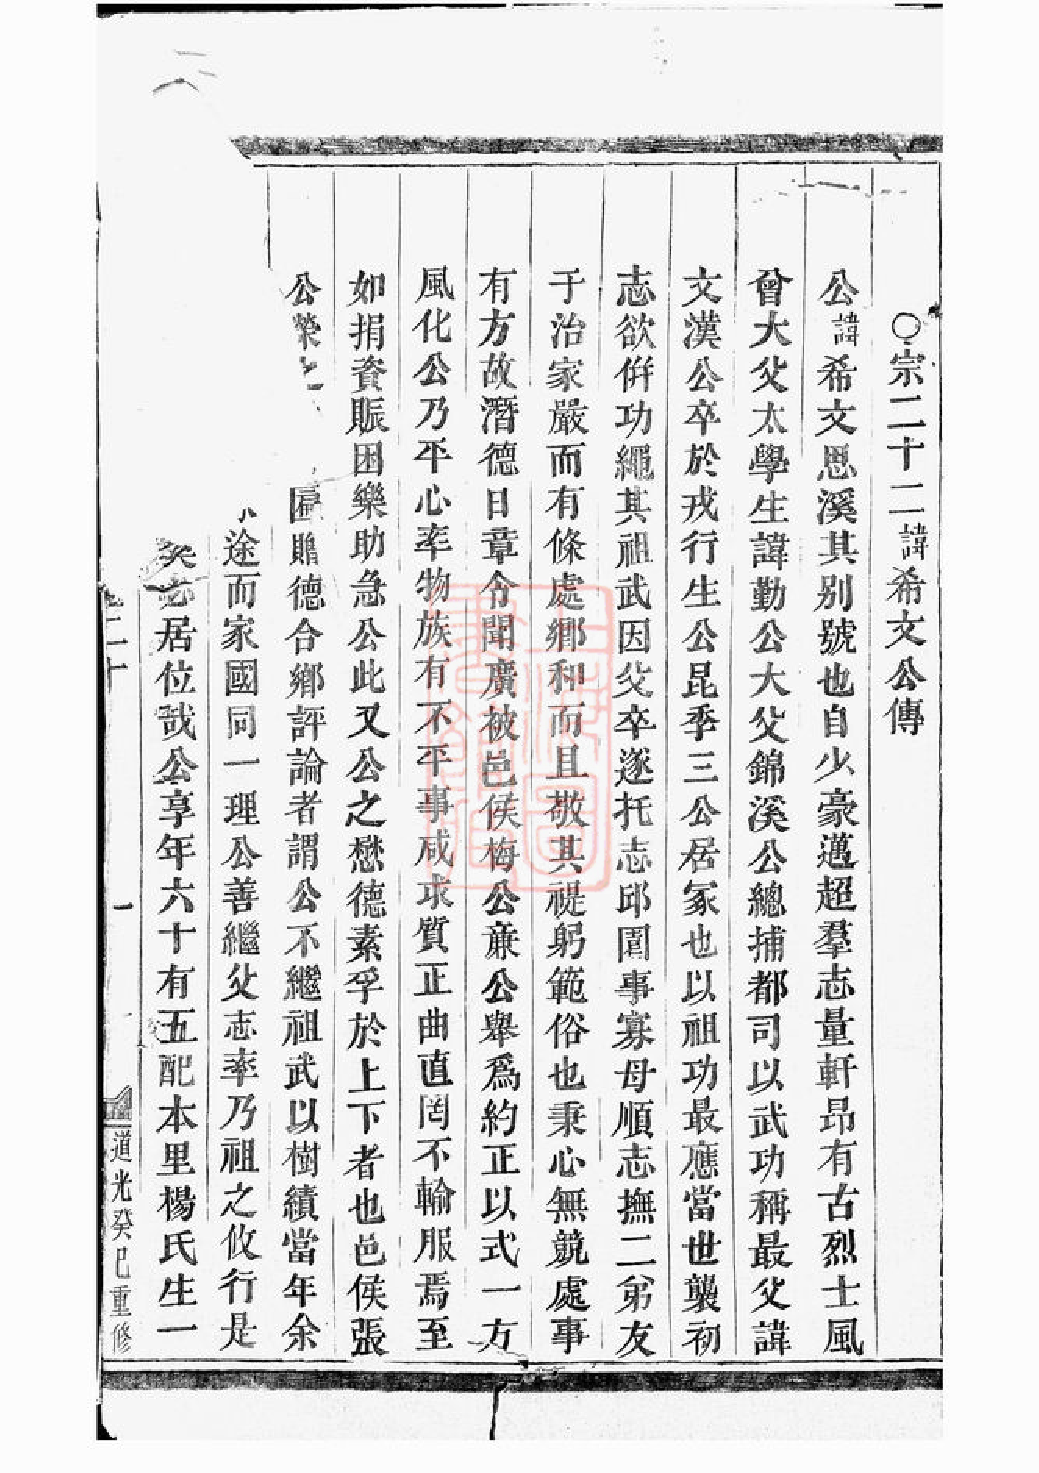 ○宗二十二諱希文公傳
公諱希文思溪其別號也自少豪邁超羣志量軒昂有古烈士風
曾大父太學生諱勤公大父錦溪公總捕都司以武功稱最父諱
文漢公卒於戎行生公昆季三公居冢也以祖功最應當世襲初
志欲倂功繩其祖武因父卒遂托志邱園事寡母順志撫二弟友
于治家嚴而有條處鄉和而且敬其禔躬範俗也秉心無競處事
有方故潛德日章令聞廣被邑侯梅公亷公舉爲約正以式一方
風化公乃平心率物族有不平事咸求質正曲直罔不輸服焉至
如捐資賑困樂助急公此又公之懋德素孚於上下者也邑侯張
公榮之匾贈德合鄉評論者謂公不繼祖武以樹績當年余
途而家國同一理公善繼父志率乃祖之攸行是
矣必居位哉公享年六十有五配本里楊氏生一
二十
一
道光癸巳重修